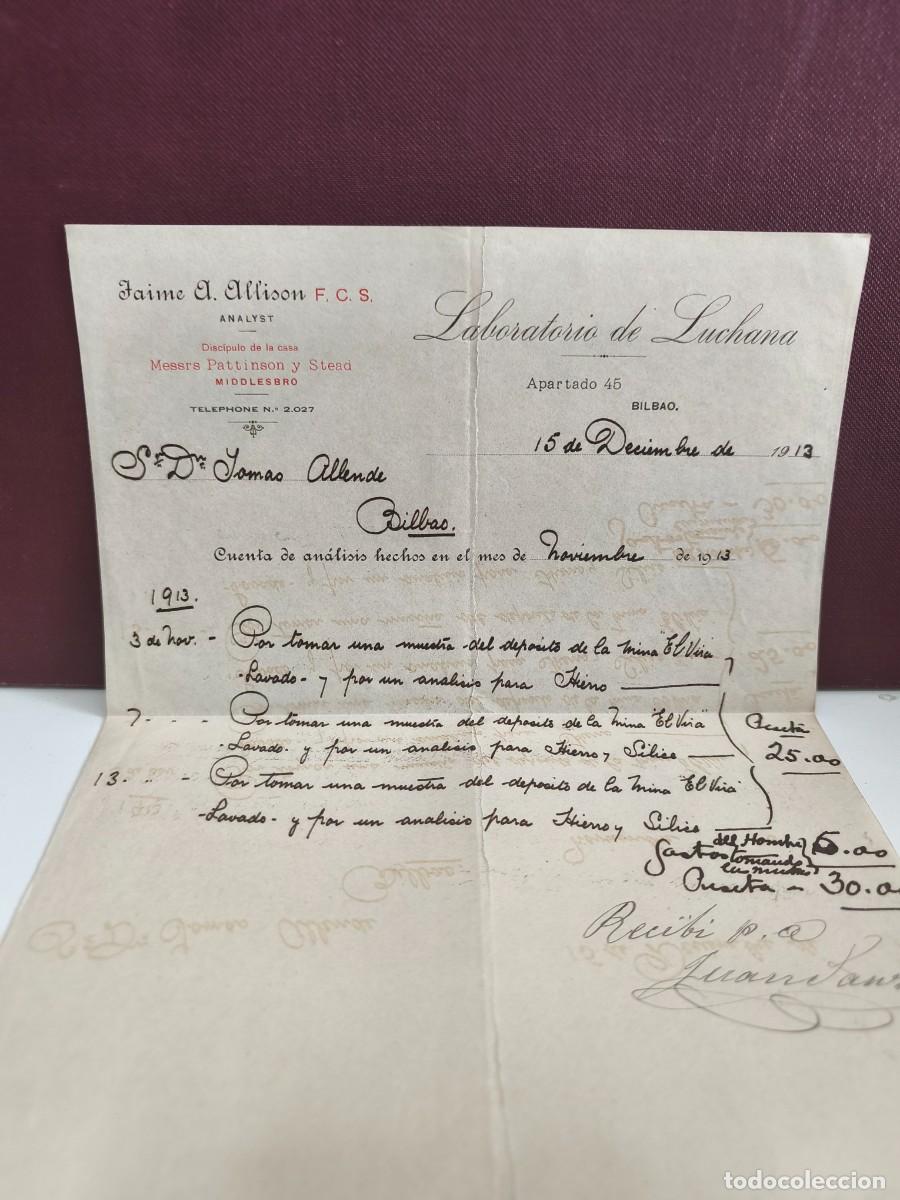 Jaime A. Allison F. C. S.
ANALYST
Discípulo de la casa
Messrs Pattinson y Stead
MIDDLESBRO
TELEPHONE N.º 2.027
Laboratorio de Luchana
Apartado 45
BILBAO.
15 de Deciembre de 1913
Sr Dn Tomas Allende
Bilbao.
Cuenta de análisis hechos en el mes de Noviembre de 1913
1913.
3 de Nov. - Por tomar una muestra del deposito de la mina "El Vira
-Lavado- y por un analisis para Hierro
7 - - - Por tomar una muestra del deposito de la mina "El Vira"
-Lavado- y por un analisis para Hierro y Silice
Pesetas
25.00
13 " " - Por tomar una muestra del deposito de la mina "El Vira"
-Lavado- y por un analisis para Hierro y Silice
Gastos del Hombre tomando las muestras 5.00
30.00
Recibi p. a
Juan
todocoleccion